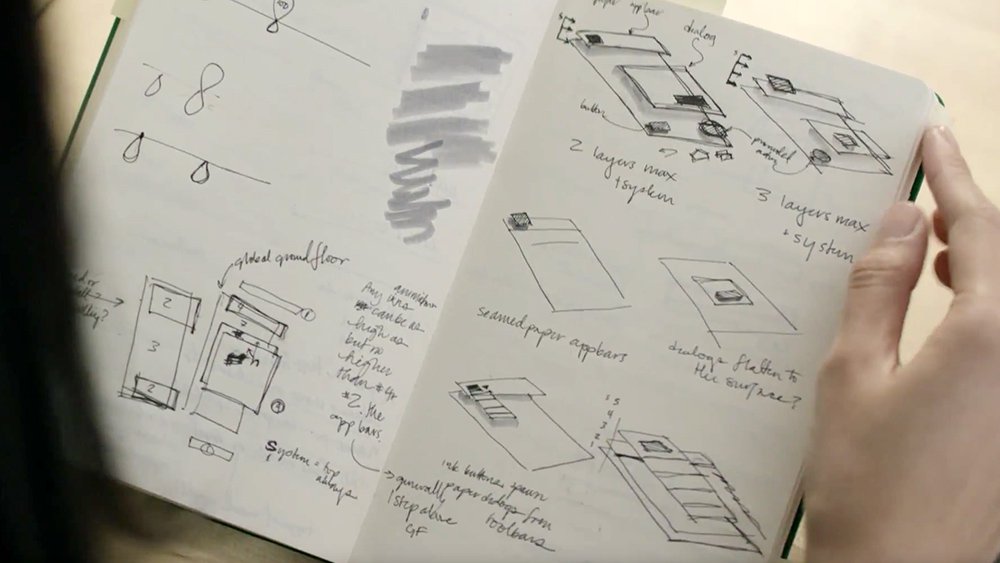 global ground floor
2
3
2
Any
can be as
high as
but no
higher
than #4
#2. the
app bars.
System = top
always
paper appbar
dialog
button
2 layers max
+ system
3 layers max
+ system
seamed paper appbars
dialogs flatten to
the surface?
5
4
3
2
1
ink buttons spawn
generally paper dialogs from
1 step above toolbars
GF